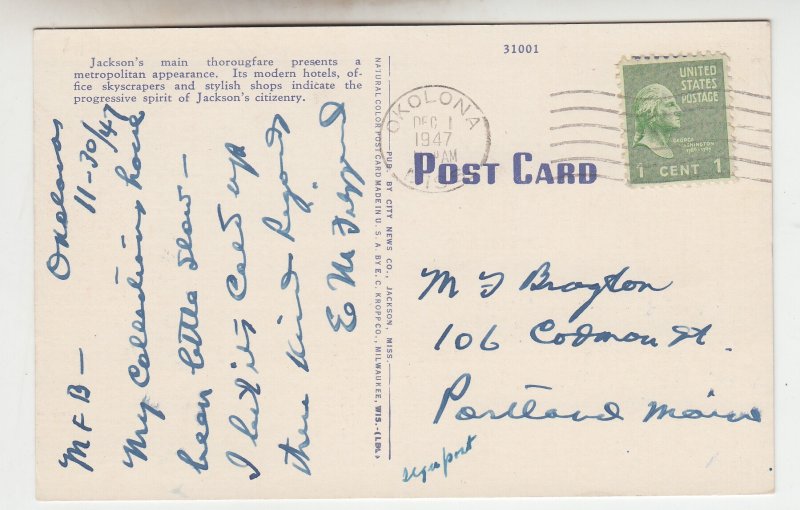 Jackson's main thorougfare presents a
metropolitan appearance. Its modern hotels, of-
fice skyscrapers and stylish shops indicate the
progressive spirit of Jackson's citizenry.
Okolona
11-30/47
MFB —
My Collections have
been little slow —
I bet it's Cold up
there Kind Regards
Ed M
NATURAL COLOR POST CARD MADE IN U. S. A. BY E. C. KROPP CO., MILWAUKEE, WIS.
PUB. BY CITY NEWS CO., JACKSON, MISS.
31001
OKOLONA
DEC 1
1947
AM
MISS
POST CARD
UNITED
STATES
POSTAGE
GEORGE
WASHINGTON
1 CENT 1
M F Brayton
106 Codman St.
Portland Maine